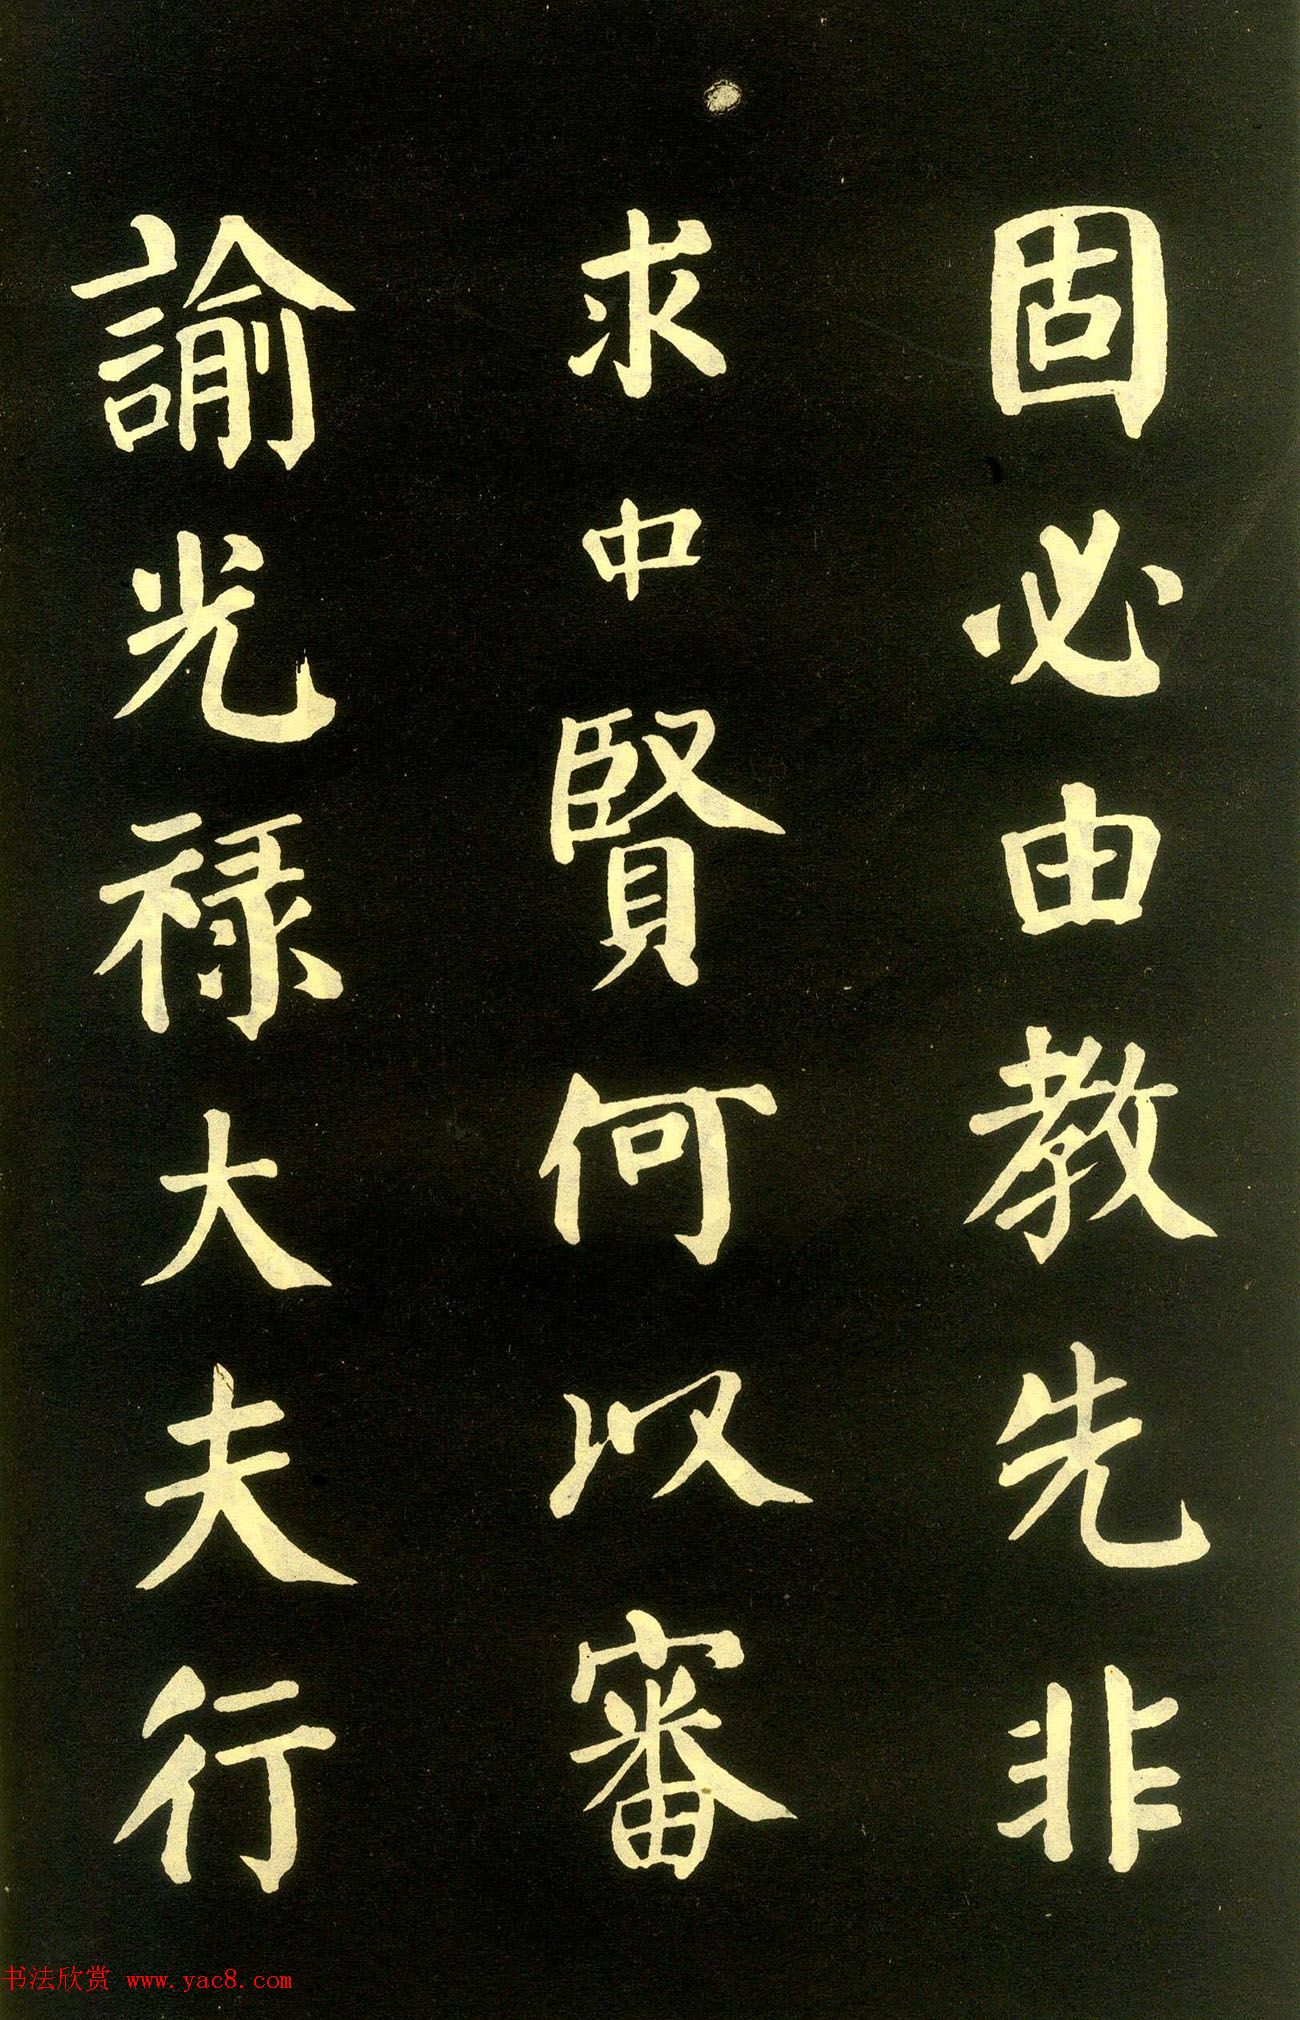 固必由教先非
求中賢何以審
諭光禄大夫行
书法欣赏 www.yac8.com